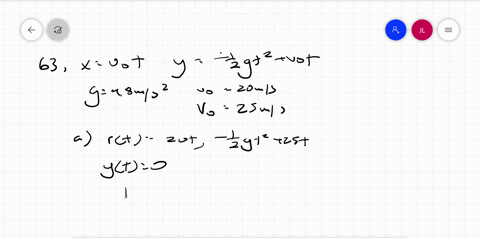 63, x = v₀t y = -½gt² + v₀t
g = 9.8 m/s² u₀ = 20 m/s
V₀ = 25 m/s
a) r(t) = 20t, -½gt² + 25t
y(t) = 0